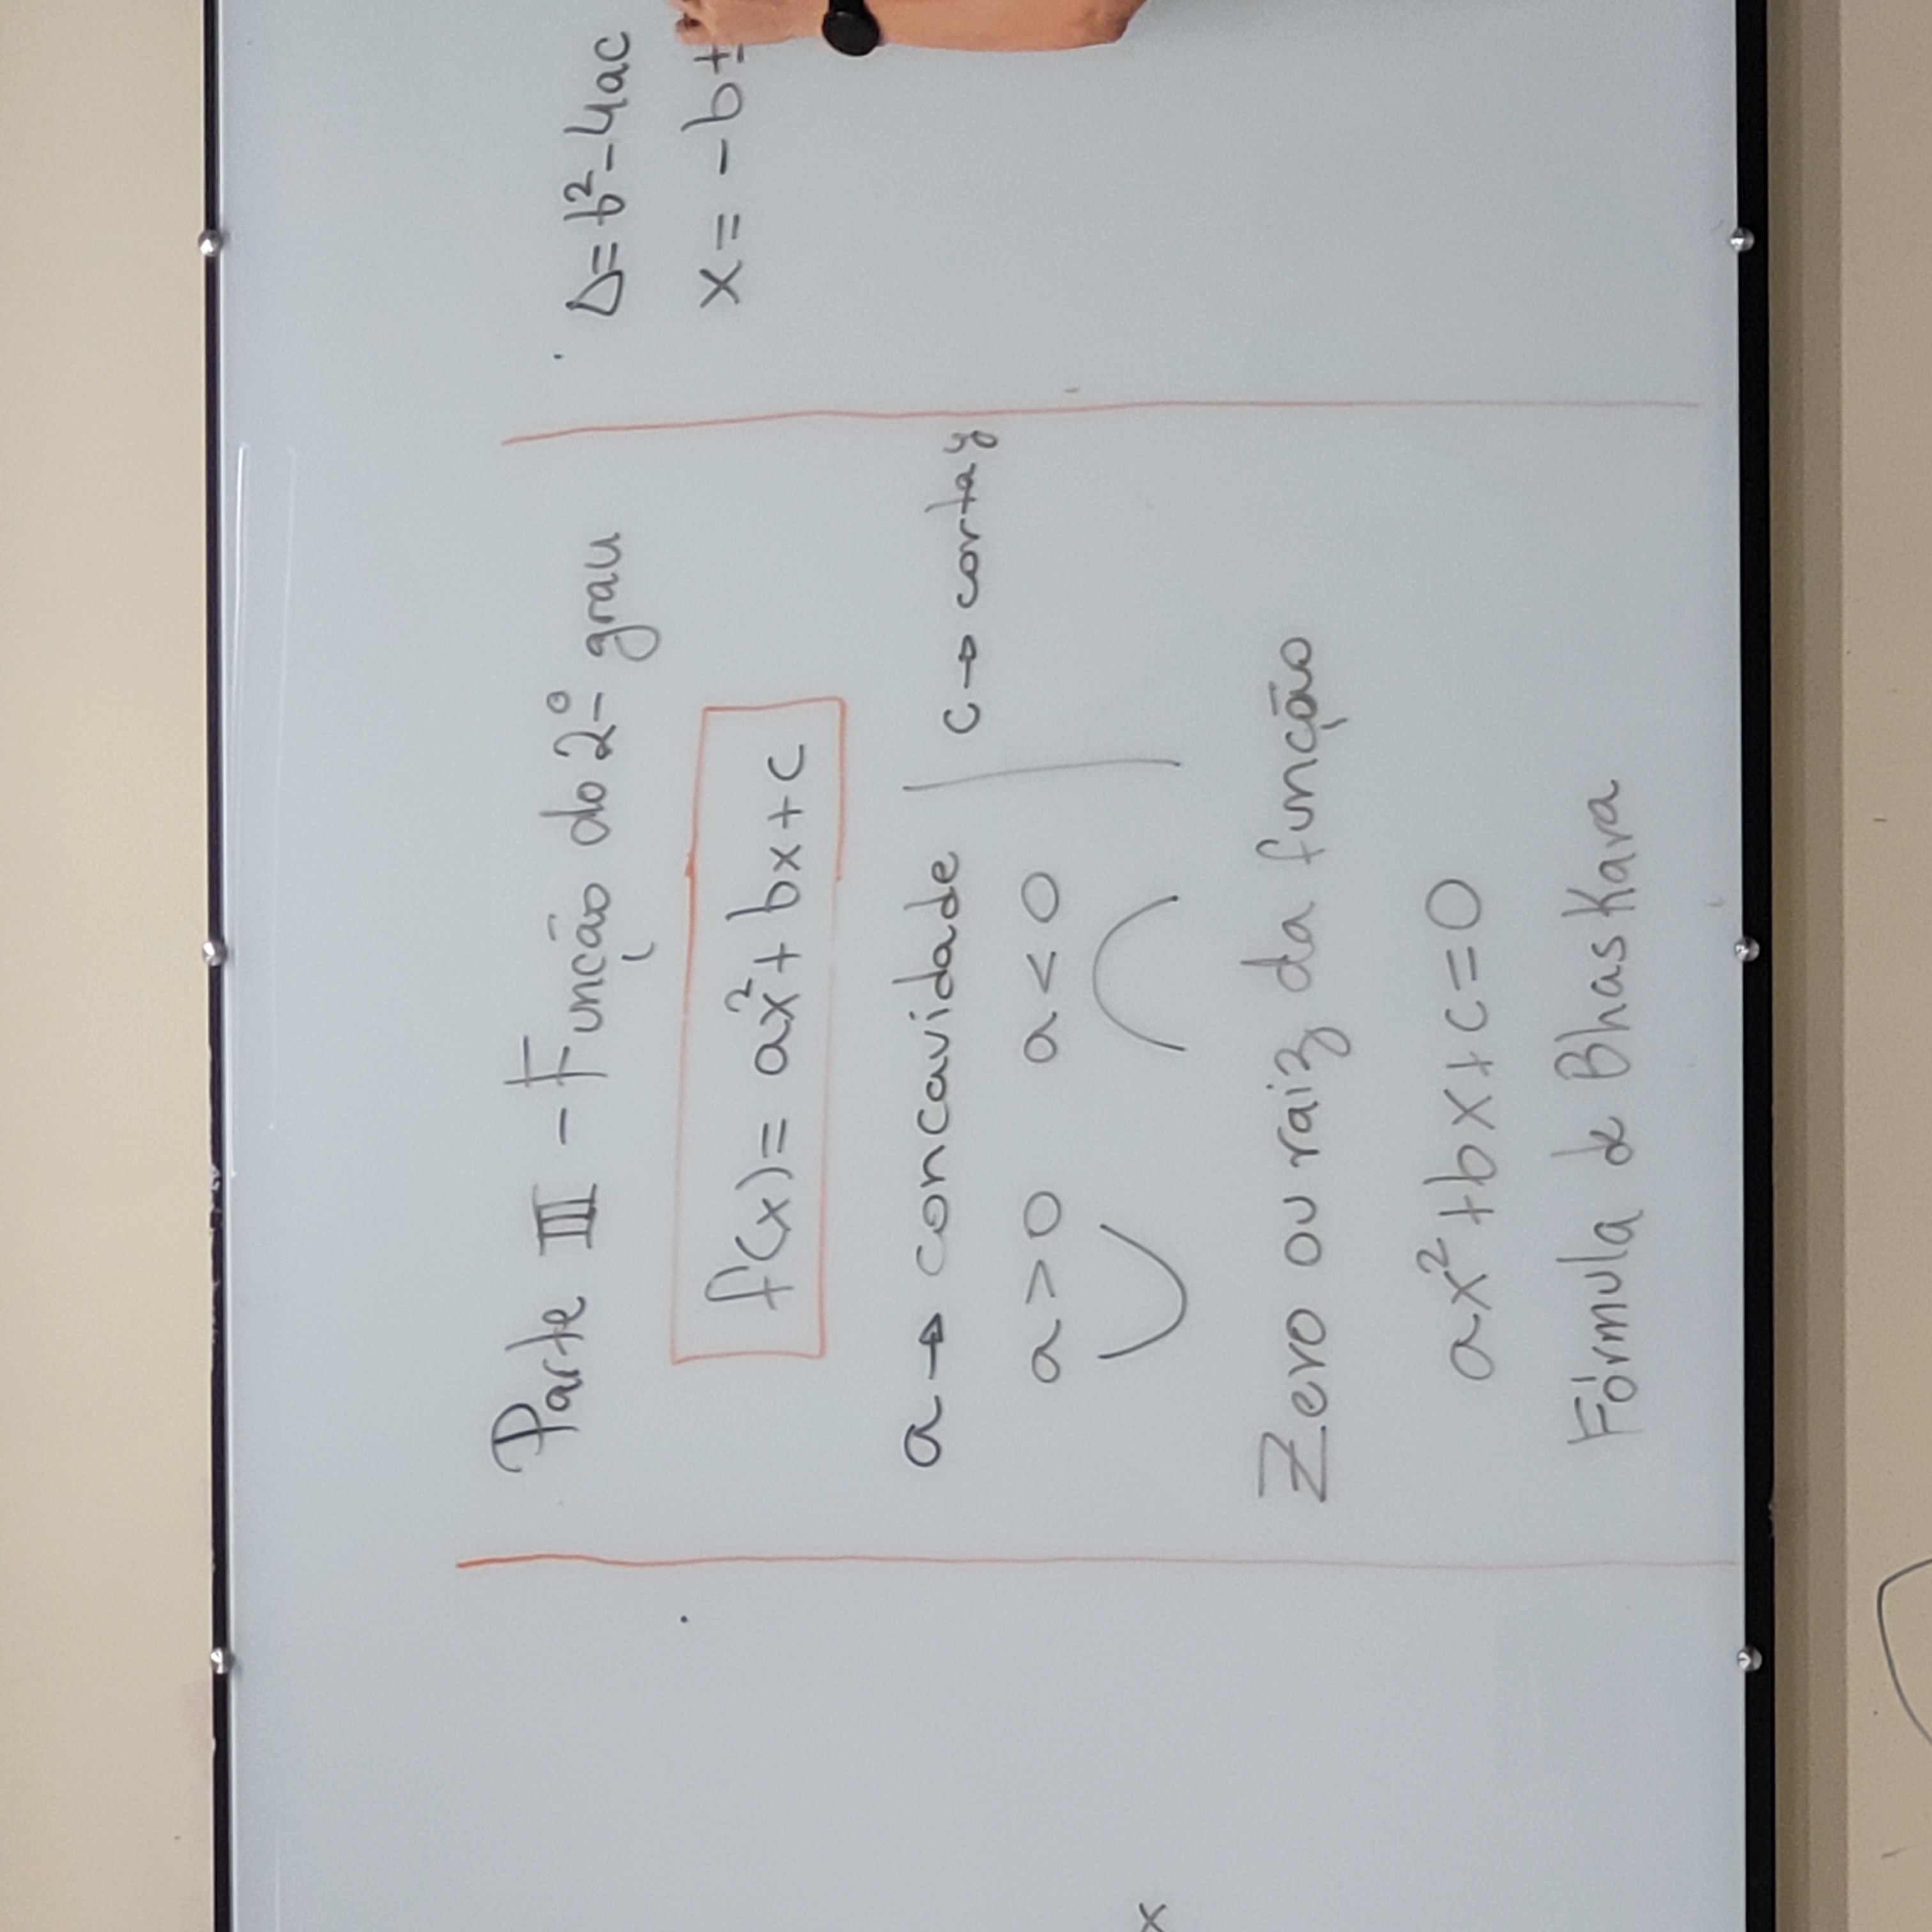 Parte III - Função do 2º grau
f(x) = ax² + bx + c
a → concavidade
c → corta y
a > 0
a < 0
Zero ou raiz da função
ax² + bx + c = 0
Fórmula de Bhaskara
Δ = b² - 4ac
x = -b ±
x